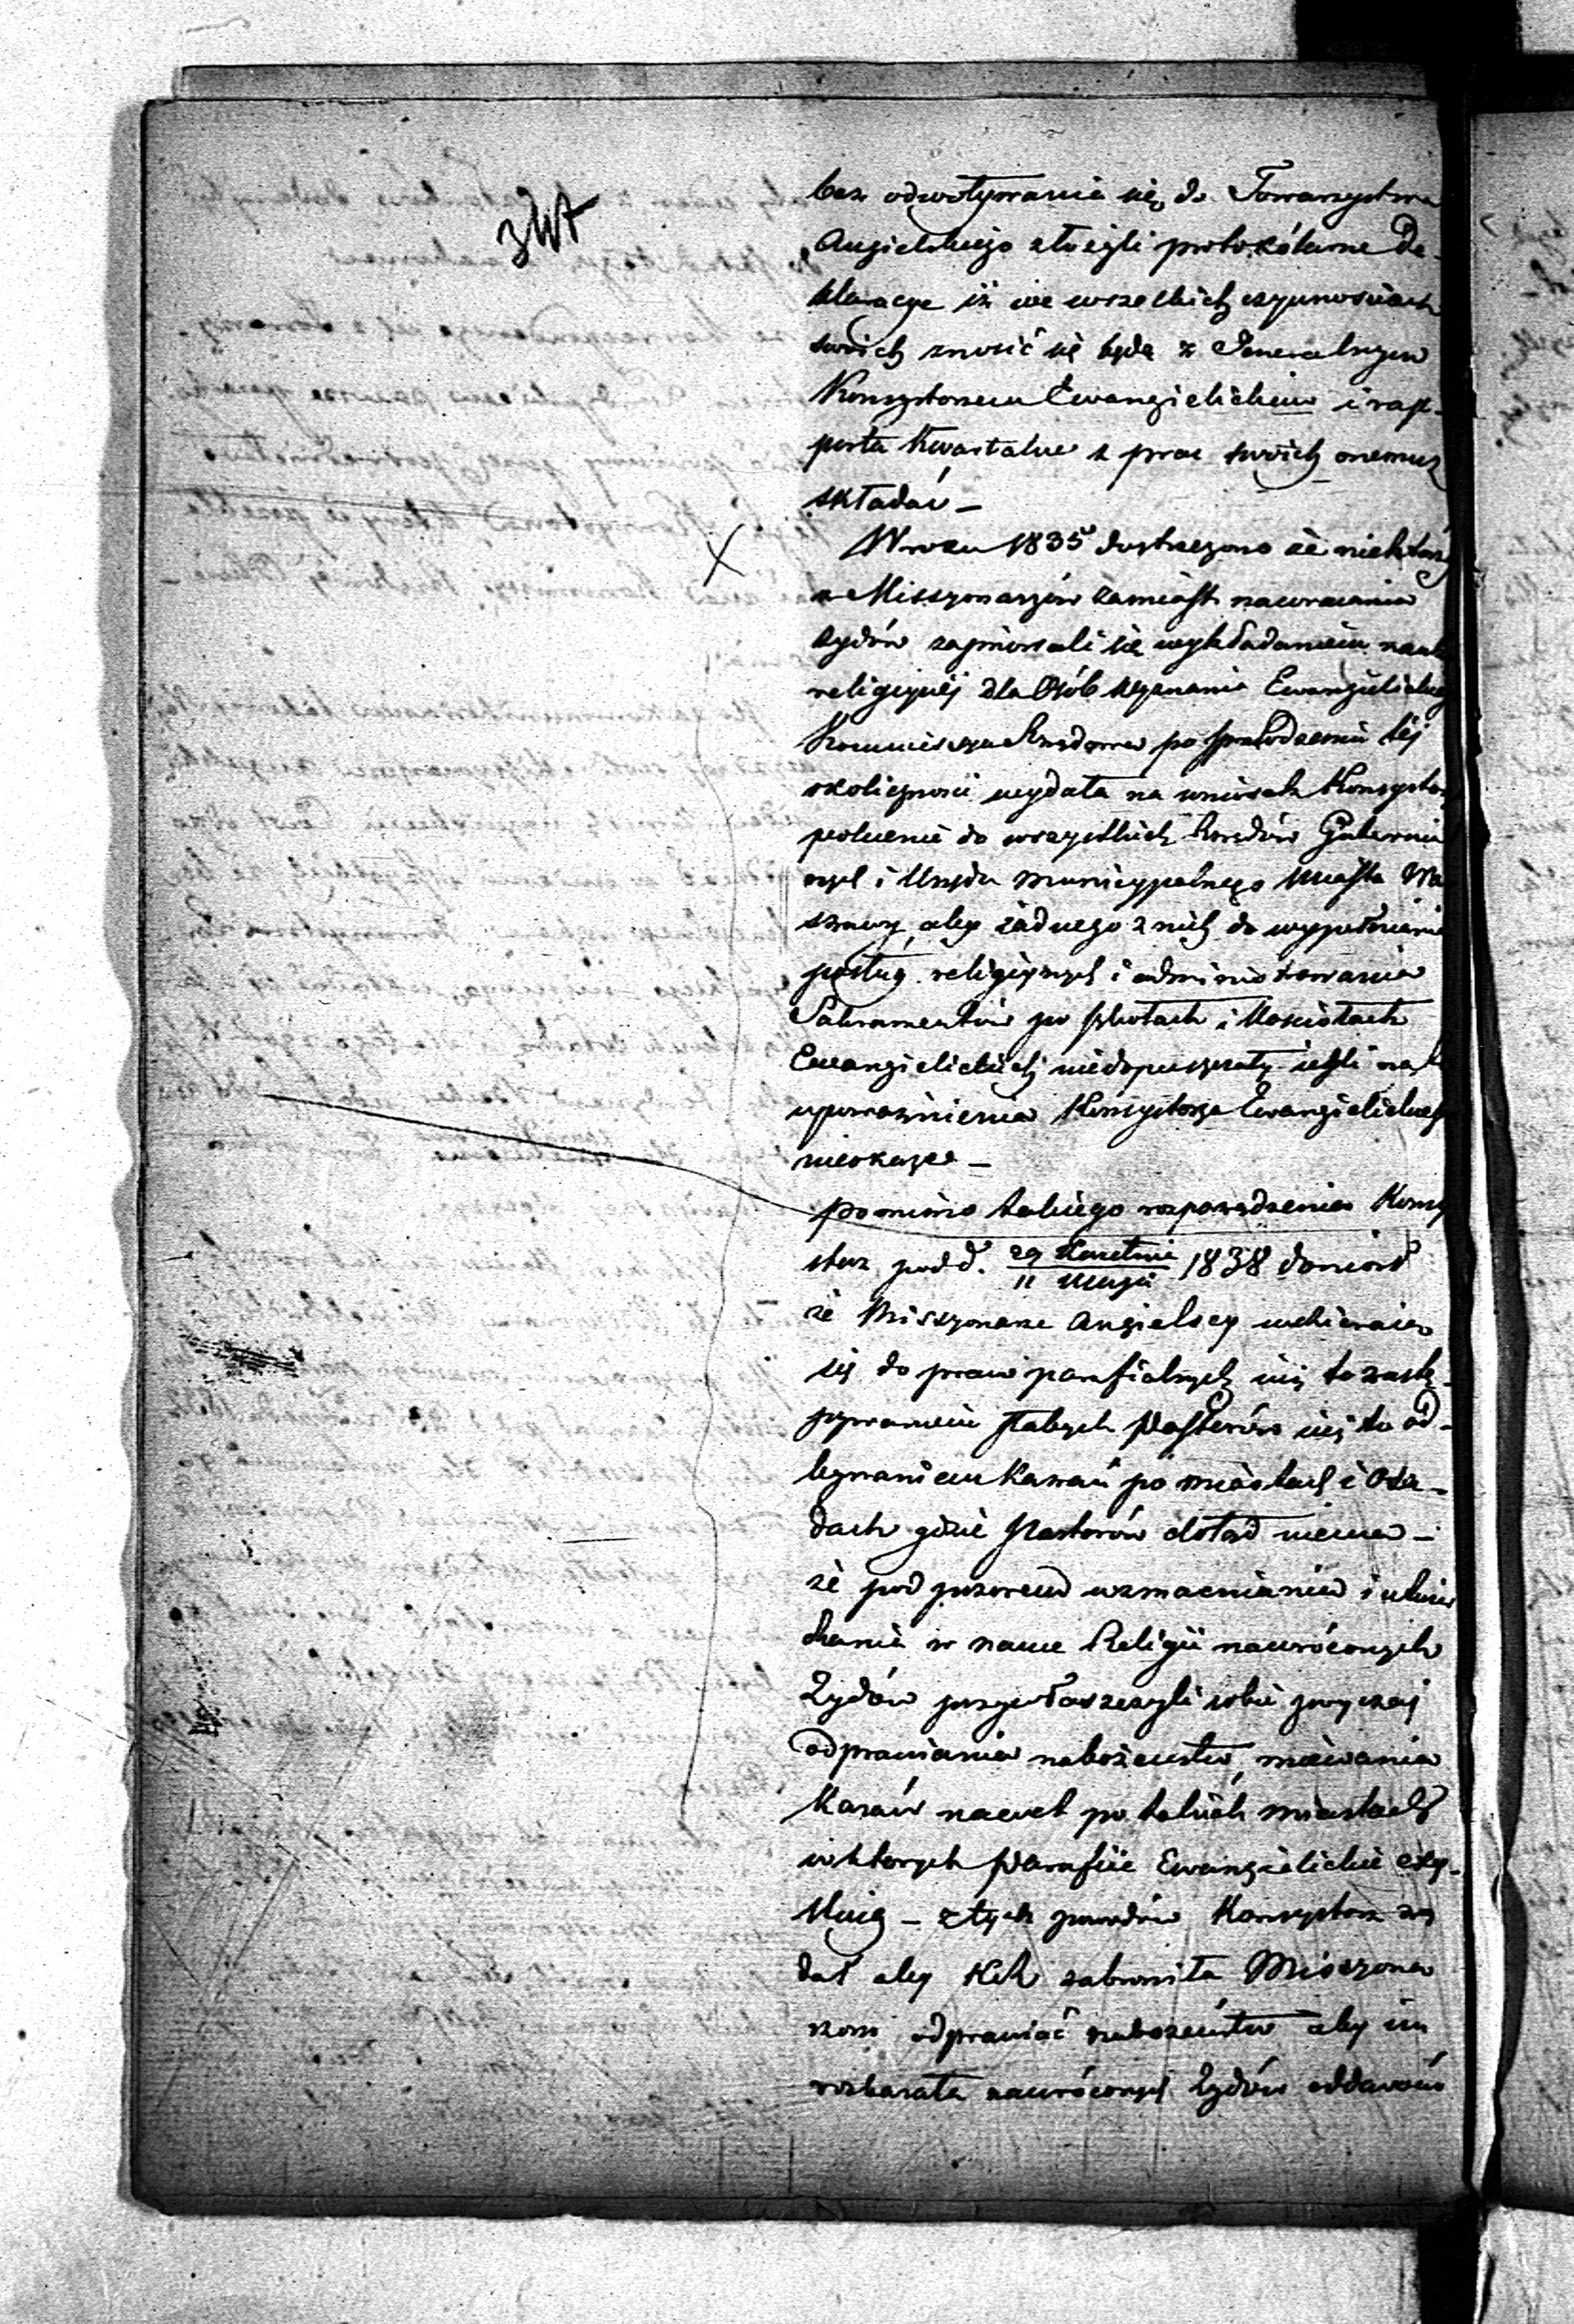 bez odwoływania się do Towarzystwa
Angielskiego złożyli protokólarne De-
klaracye iż we wszelkich czynnościach
swoich znosić się będą z Jeneralnym
Konsystorzem Ewangielickim i rap-
porta Kwartalne z prac swoich onemuż
składać —
W roku 1835 dostrzeżono że niektórzy
z Missyonarzów zamiast nawracania
żydów zajmowali się wykładaniem nauki
religijnéj dla Osób wyznania Ewangielickiego
Kommissya Rządowa po sprawdzeniu téj
okoliczności wydała na wniosek Konsystorza
polecenie do wszystkich Rządów Gubernial
nych i Urzędu Municypalnego Miasta War
szawy, aby żadnego z nich do wypełniania
posług religijnych i administrowania
Sakramentów po szkołach i Kościołach
Ewangielickich niedopuszczały jeśli na to
upoważnienia Konsystorza Ewangielickiego
nieokaże —
pomimo takiego rozporządzenia Konsy
storz pod d. 29 Kwietnia / 11 Maja 1838 doniósł
że Missyonarze Angielscy wdzierają
się do praw parafialnych już to zastę-
pywaniem słabych Pastorów już to od-
bywaniem Kazań po miastach i Osa-
dach gdzie Pastorów dotąd niema —
że pod pozorem wzmacniania i utwier
dzania w nauce Religii nawróconych
Żydów przywłaszczyli sobie zwyczaj
odprawiania nabożeństw, miewania
Kazań nawet po takich miastach
w których Parafiie Ewangielickie exy-
stują — z tych powodów Konsystorz żą
dał aby KRz zabroniła Missyona
rzom odprawiać nabożeństw aby im
rozkazała nawróconych Żydów oddawać